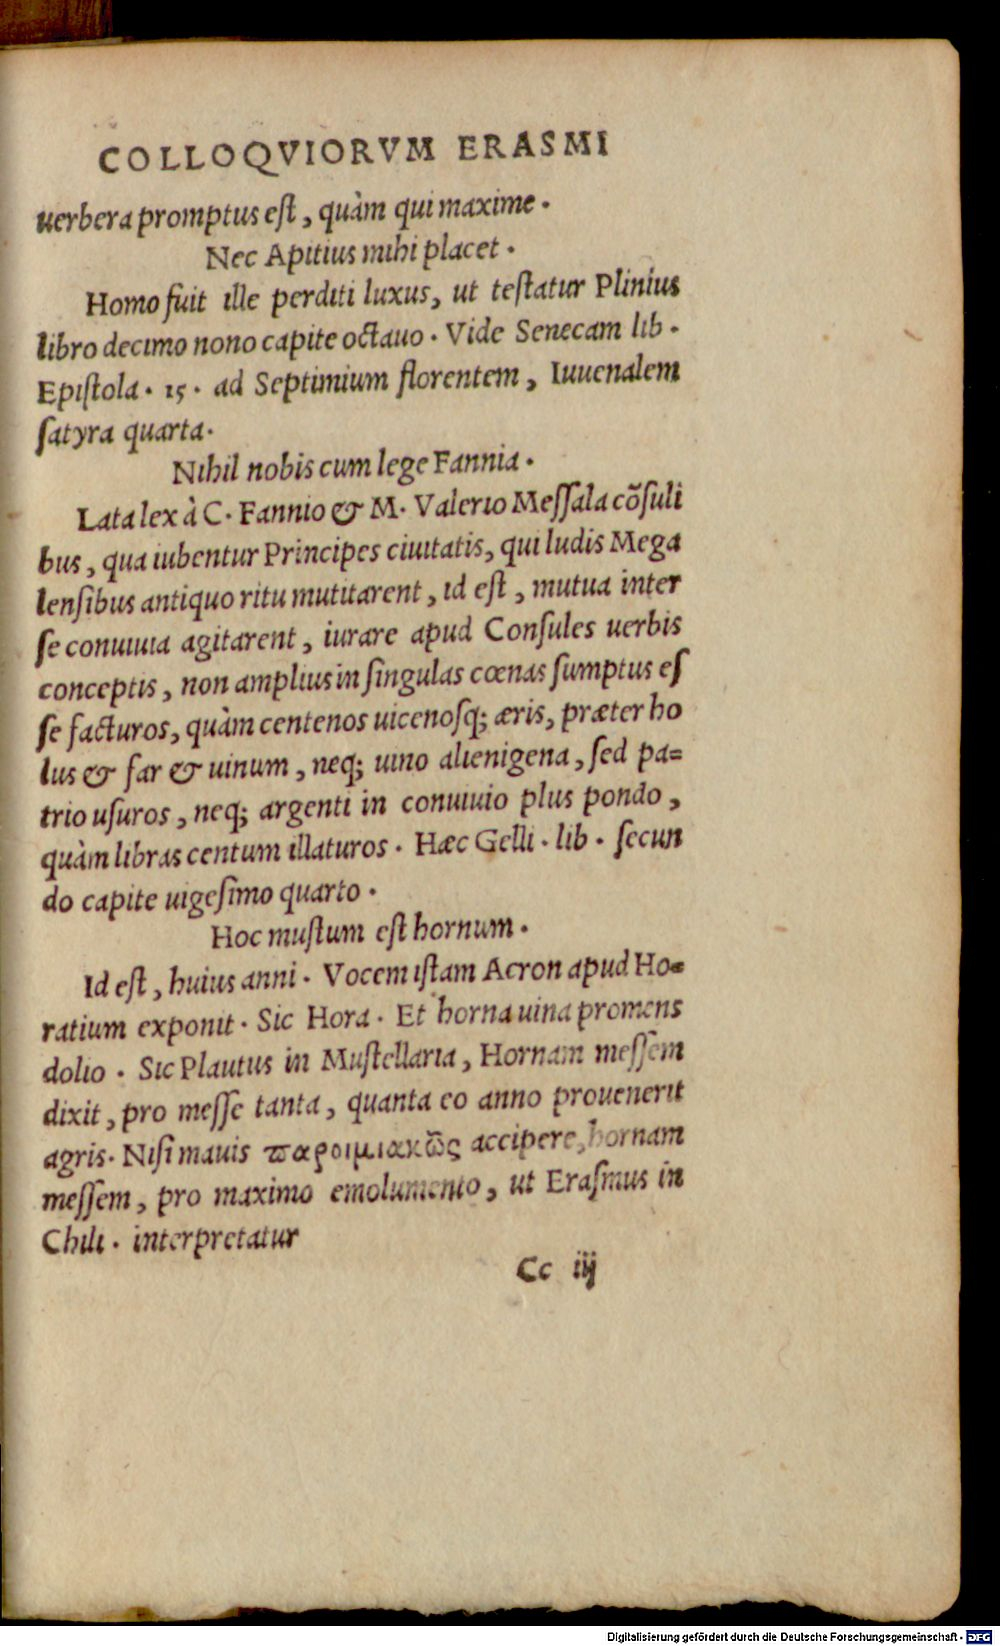 COLLOQVIORVM ERASMI
uerbera promptus eſt, quàm qui maxime.
Nec Apitius mihi placet.
Homo fuit ille perditi luxus, ut teſtatur Plinius
libro decimo nono capite octauo. Vide Senecam lib.
Epiſtola. 15. ad Septimium florentem, Iuuenalem
ſatyra quarta.
Nihil nobis cum lege Fannia.
Lata lex à C. Fannio & M. Valerio Meſſala cõſuli
bus, qua iubentur Principes ciuitatis, qui ludis Mega
lenſibus antiquo ritu mutitarent, id eſt, mutua inter
ſe conuiuia agitarent, iurare apud Conſules uerbis
conceptis, non amplius in ſingulas cœnas ſumptus eſ
ſe facturos, quàm centenos uicenoſq; æris, præter ho
lus & far & uinum, neq; uino alienigena, ſed pa=
trio uſuros, neq; argenti in conuiuio plus pondo,
quàm libras centum illaturos. Hæc Gelli. lib. ſecun
do capite uigeſimo quarto.
Hoc muſtum eſt hornum.
Id eſt, huius anni. Vocem iſtam Acron apud Ho=
ratium exponit. Sic Hora. Et horna uina promens
dolio. Sic Plautus in Muſtellaria, Hornam meſſem
dixit, pro meſſe tanta, quanta eo anno prouenerit
agris. Niſi mauis παροιμιακῶς accipere, hornam
meſſem, pro maximo emolumento, ut Eraſmus in
Chili. interpretatur
Cc iij
Digitalisierung gefördert durch die Deutsche Forschungsgemeinschaft - DFG